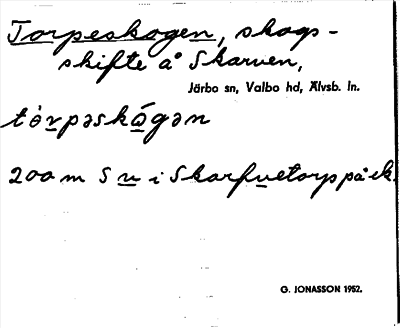 Torpeskogen, skogs-
skifte å Skarven,
Järbo sn, Valbo hd, Älvsb. ln.
tòrpəskógən
200 m S n i Skarfvetorp på ek.
G. JONASSON 1952.